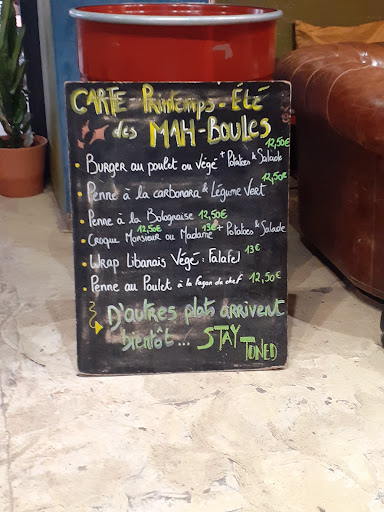 CARTE - Printemps - Été
des MAH-BOULES
12,50€
• Burger au poulet ou Végé + Potatoes & Salade
12,50€
• Penne à la carbonara & Légume Vert
• Penne à la Bolognaise 12,50€
12,50€ 13€
• Croque Monsieur ou Madame + Potatoes & Salade
• Wrap Libanais Végé : Falafel 13€
• Penne au Poulet à la façon du chef 12,50€
D'autres plats arrivent
bientôt... STAY TONED